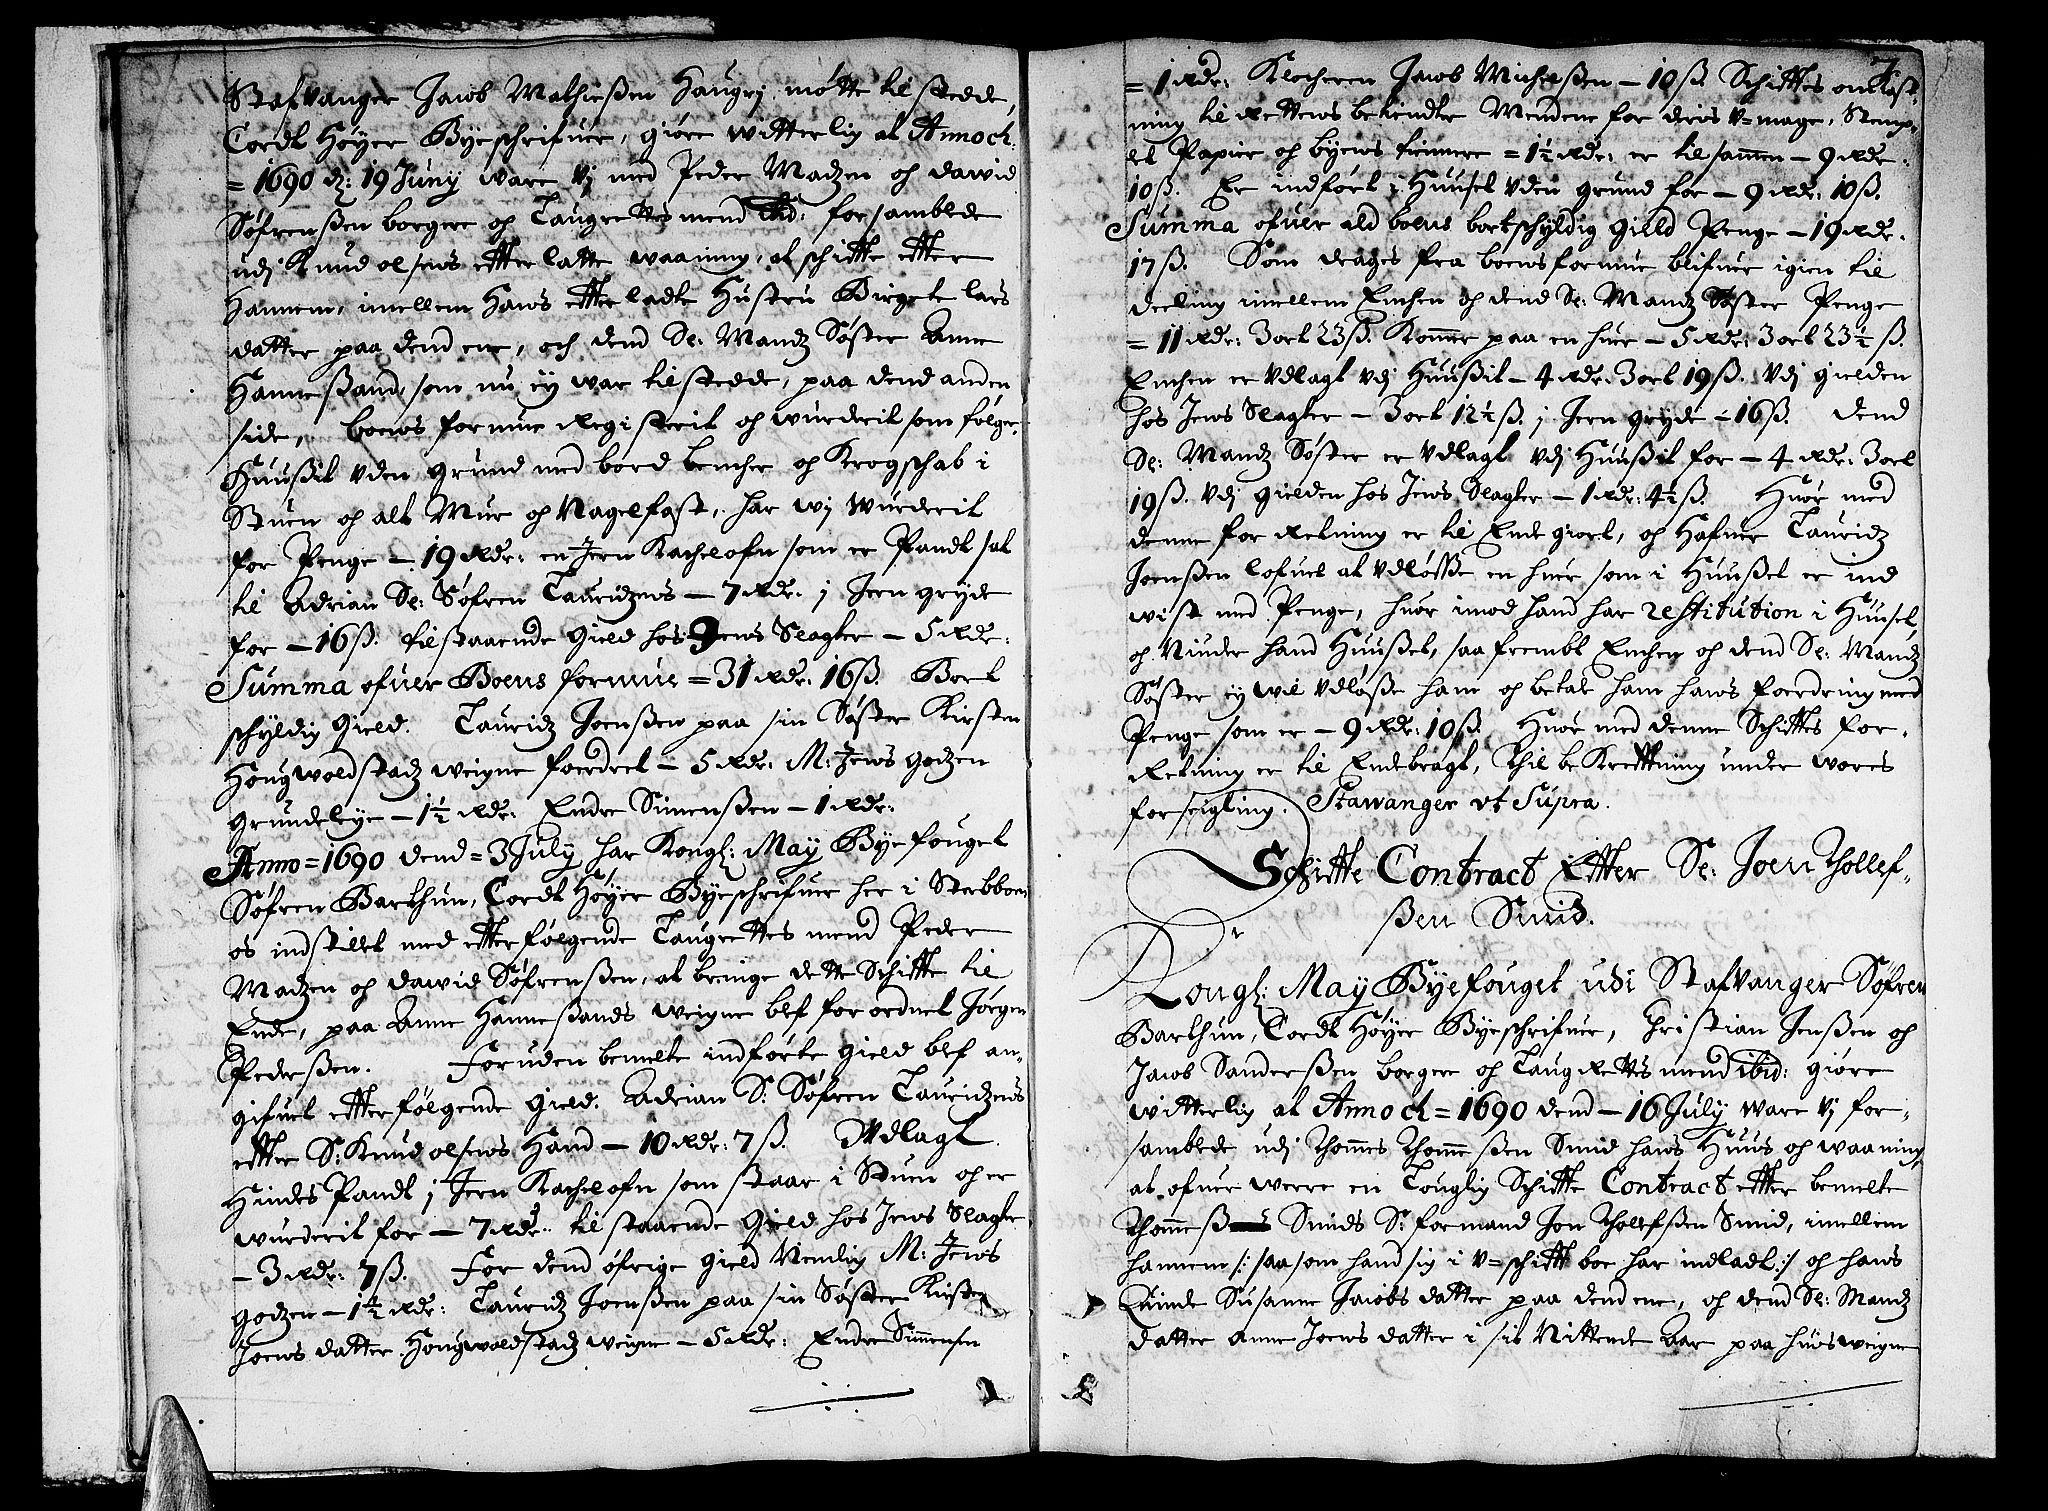 Stafvanger Jacob Mathießen Haugej møtte til stedde,
Cordt Høyer Byeschrifuer, giøre witterlig at Anno ch:
= 1690 d: 19 Juny ware vj med Peder Madzen och Dawid
Søfrenßen borgere og Laugrettes mend ibid: forsamblede
udj Knud olsens etterlatte waaning, at schiffte etter
Hannem, imellem Hans etterladte Hustru Birgete lars
datter paa dend ene, och dend Sl: Mandz Søster Anne
Hannesand, som nu ey war til stedde, paa dend anden
side, boens formue Registerit og wurderit som følger.
Huußit uden grund med bord bencher og Krogschab i
Stuen og alt Mur og Nagelfast, har wj wurderit
for Penge — 19 Rdr: en Jern Kachelofn som er Pandt sat
til Adrian Sl: Søfren Lauridzens — 7 Rdr: j Jern gryde
for — 16 ß. tilstaaende gield hos Jens Slagter — 5 Rdr:
Summa ofuer Boens formue = 31 Rdr: 16 ß. Bort
schyldig gield. Lauridz Joenßen paa sin Søster Kirsten
Hougwoldstadz weigne foerdret — 5 Rdr: M: Jens godzen
grundeleye — 1½ Rdr: Endre Simenßen — 1 Rdr:
Anno = 1690 dend = 3 July har Kongl: May Byefouget
Søfren Barthun, Cordt Høyer Byeschrifuer her i Sterbboen
os indstillet med etterfølgende Laugrettes mend Peder
Madzen og Dawid Søfrenßen, at bringe dette Schiffte til
Ende, paa Anne Hannesands weigne blef forordnet Jørgen
Pederßen. Foruden bemelte indførte gield blef an-
gifuet etterfølgende gield. Adrian S: Søfren Lauridzens
etter S: Knud olsens Hand — 10 Rdr: 7 ß. Udlagt
Hindes Pandt j Jern Kachelofn som staar i Stuen og er
wurderit for — 7 Rdr: til staaende gield hos Jens Slagter
— 3 Rdr: 7 ß. For dend øfrige gield Nemlig M: Jens
godzen — 1½ Rdr: Lauridz Joenßen paa sin Søster Kirsten
Joens datter Hougwoldstadz weigne — 5 Rdr: Endre Simmensen
7
= 1 Rdr: Klocheren Jacob Michelßen — 10 ß. Schifftes
ning til Rettens betiendte Mendene for deris u-mage, Stemp-
let Papier og byens = 1½ Rdr: er tilsamen — 9 Rdr:
10 ß. Er indført i Huuset uden grund for — 9 Rdr: 10 ß.
Summa ofuer ald boens bortschyldig gield Penge — 19 Rdr.
17 ß. Som drages fra boens formue blifuer igien til
deeling imellem Enchen og dend Sl: Mandz Søster Penge
= 11 Rdr: 3 ort 23 ß. Kommer paa en huer — 5 Rdr: 3 ort 23½ ß.
Enchen er udlagt udj Huußit — 4 Rdr: 3 ort 19 ß. udj gielden
hos Jens Slagter — 3 ort 12½ ß. j Jern gryde — 16 ß. Dend
Sl: Mandz Søster er udlagt udj Huußit for — 4 Rdr: 3 ort
19 ß. udj gielden hos Jens Slagter — 1 Rdr: 4½ ß. Huor med
denne for Retning er til Ende giort, og Hafuer Lauridz
Joenßen lofuet at udløsße en huer som i Huußet er ind
wist med Penge, huor imod hand har restitution i Huuset,
og Niuder hand Huußet, saa frembt Enchen og dend Sl: Mandz
Søster ey wil udløße ham og betale ham hans foerdring med
Penge som er — 9 Rdr: 10 ß. Huor med denne Schifftes for-
Retning er til Endebragt, Thil bekrefftning under wores
forseigling. Stawanger ut Supra.
Schiffte Contract Etter Sl: Joen Thollef-
ßen Smid.
Kongl: May Byefouget udi Stafvanger Søfren
Barthun, Cordt Høyer Byeschrifuer, Christian Jenßen og
Jacob Sanderßen borgere og Laug Rettes mend ibid: giøre
witterlig at Anno ch = 1690 dend — 16 July ware vj for-
samblede udj Thomes Thomeßen Smid hans Huus og waaning,
at ofuer werre en Louglig Schiffte Contract etter bemelte
Thomeß Smids S: formand Jon Tholefßen Smid, imellem
hannem /: saa som hand sig i u-schifft boe har indladt :/ og hans
Quinde Susanne Jacobs datter paa dend ene, og dend Sl: Mandz
datter Anne Joens datter i sit Nittende Aar paa huis weigne